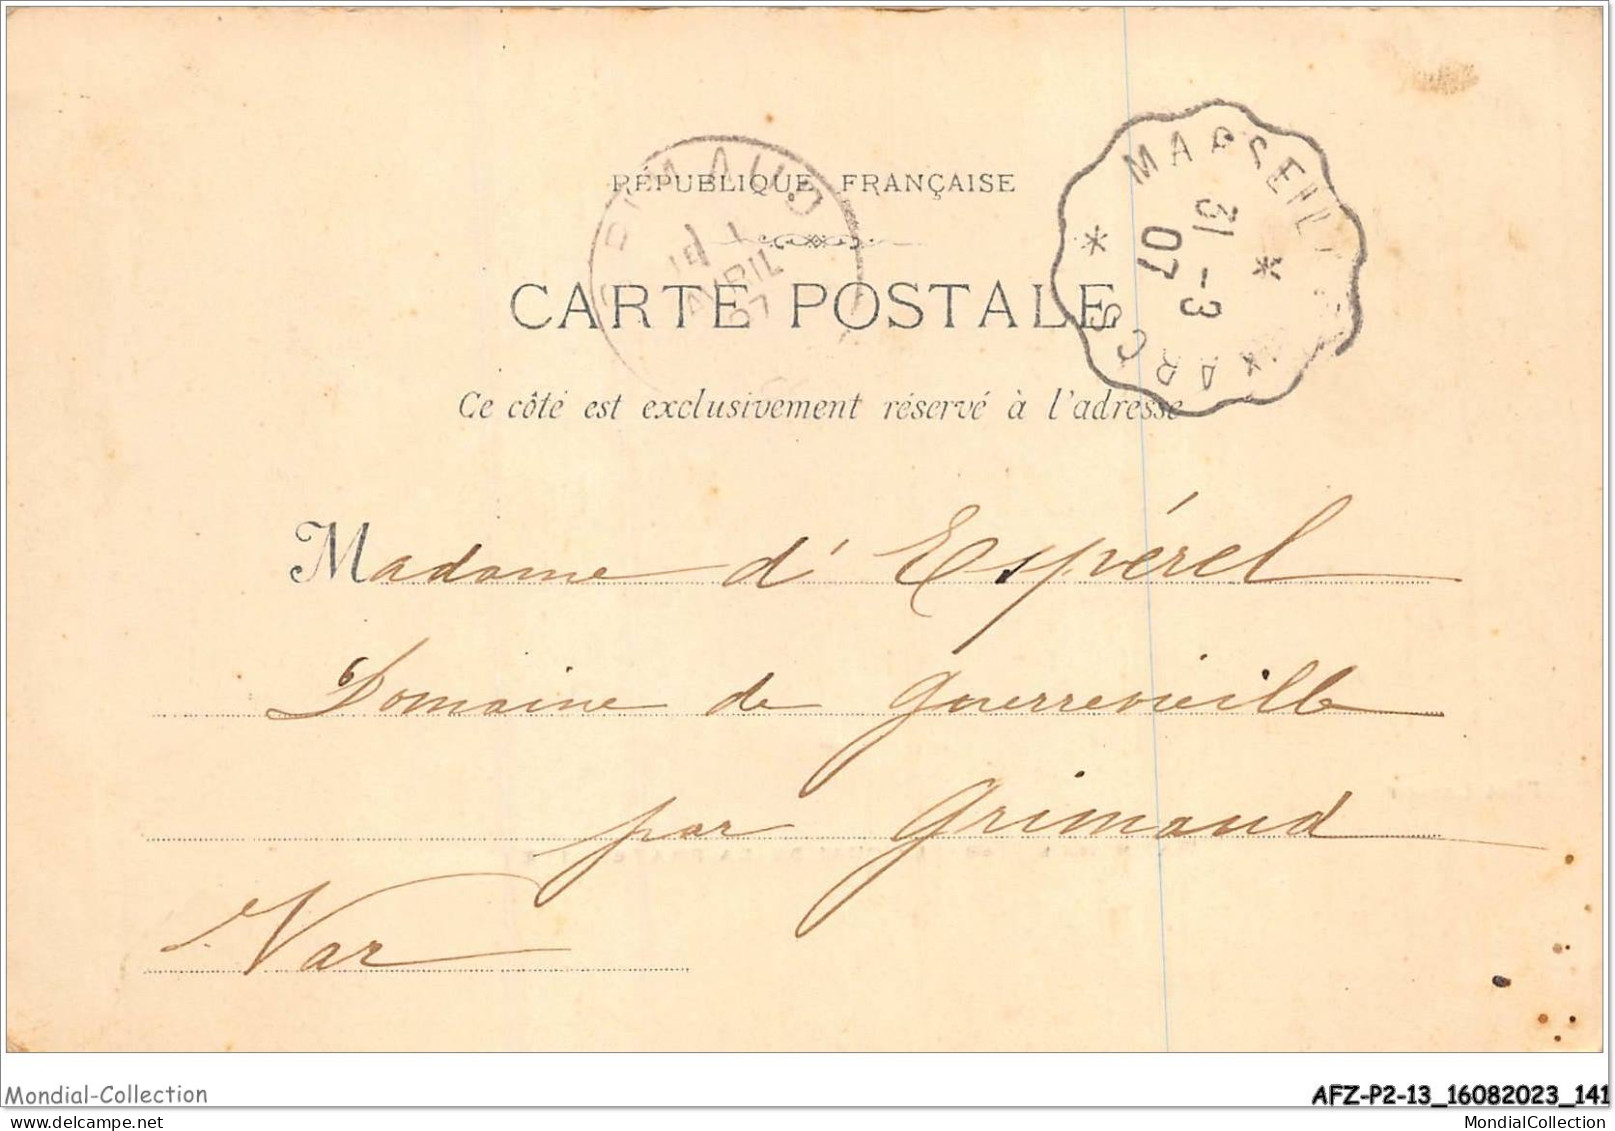 RÉPUBLIQUE FRANÇAISE
CARTE POSTALE
Ce côté est exclusivement réservé à l'adresse
GRIMAUD
1
AVRIL
07
MARSEILLE
ARCS
31 -3
07
Madame d'Espérel
Domaine de Guerrevieille
par Grimaud
Var
Mondial-Collection
AFZ-P2-13_16082023_141
MondialCollection